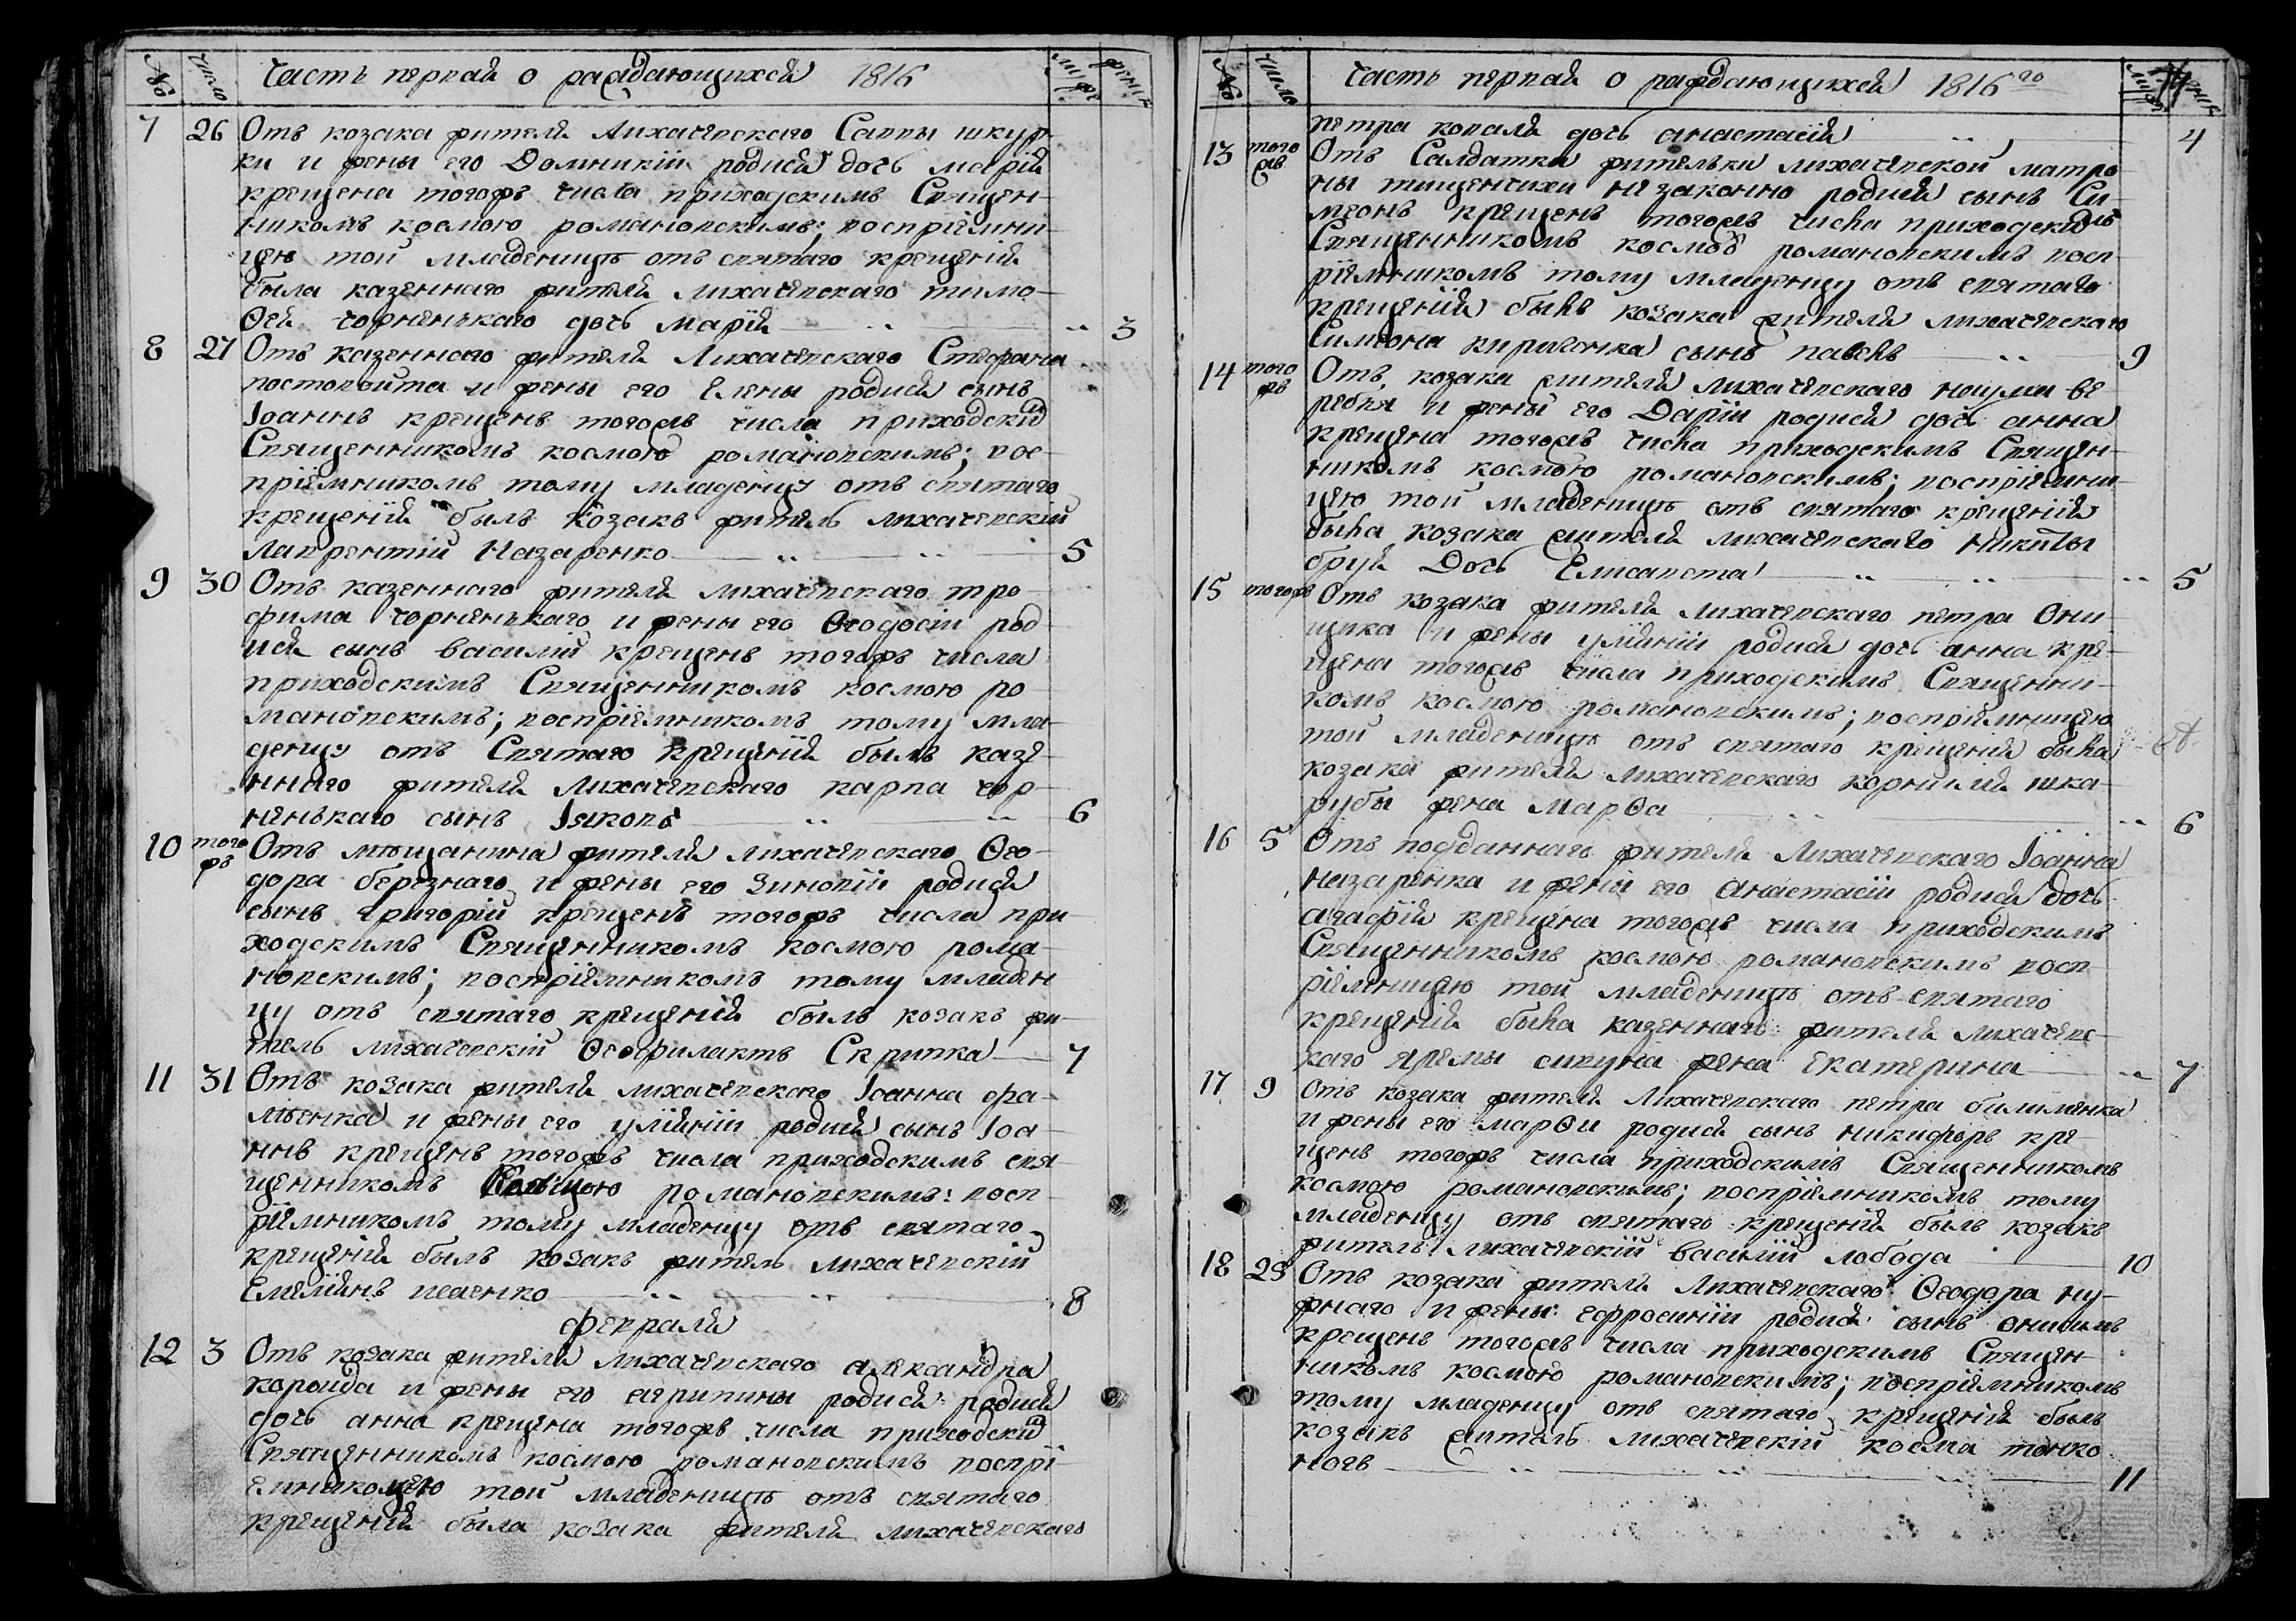 № число Часть первая о раждающихся 1816 мужеск женск
7 26 Отъ козака жителя Лихачевскаго Саввы шкур-
ки и жены его Домникіи родися дочь марія
крещена тогожъ числа приходскимъ Священ-
никомъ космою романовскимъ; воспріемни-
цею той младеницѣ отъ святаго крещенія
была казеннаго жителя лихачевскаго тимо-
ѳея чорненкаго дочь марія 3
8 27 Отъ казеннаго жителя Лихачевскаго Стефана
и жены его Елены родися сынъ
Іоаннъ крещенъ тогожъ числа приходским
Священникомъ космою романовскимъ; вос-
пріемникомъ тому младенцу отъ святаго
крещенія былъ козакъ житель лихачевскій
лаврентій Назаренко 5
9 30 Отъ казеннаго жителя лихачевскаго тро-
фима чорненкаго и жены его Ѳеодосіи род-
ися сынъ василій крещенъ тогожъ числа
приходскимъ Священникомъ космою ро-
мановскимъ; воспріемникомъ тому мла-
денцу отъ Святаго крещенія былъ казе-
ннаго жителя Лихачевскаго карпа чор-
ненькаго сынъ Іяковъ 6
10 того жъ Отъ мѣщанина жителя лихачевскаго Ѳео-
дора березнаго и жены его Зиновіи родися
сынъ григорій крещенъ тогожъ числа при
ходскимъ Священникомъ космою рома-
новскимъ; воспріемникомъ тому младен
цу отъ святаго крещенія былъ козакъ жи-
тель лихачевскій Ѳеофилактъ Скрипка 7
11 31 Отъ козака жителя лихачевскаго Іоанна хра-
и жены его уліяніи родися сынъ Іоа-
ннъ крещенъ тогожъ числа приходскимъ свя
щенникомъ Космою романовскимъ: восп-
ріемникомъ тому младенцу отъ святаго
крещенія былъ козакъ житель лихачевскій
Емеліянъ 8
февраля
12 3 Отъ козака жителя лихачевскаго александра
и жены его агрипины родися родися
дочь анна крещена тогожъ числа приходским
Священникомъ космою романовскимъ воспрі-
той младеницѣ отъ святаго
крещенія была козака жителя лихачевскаго
№ число Часть первая о раждающихся 1816го мужеск женск
петра коваля дочь анастасія 4
13 того жъ Отъ Салдатки жительки лихачевской матро
ны незаконно родися сынъ Си-
меонъ крещенъ тогожъ числа приходским
Священникомъ космою романовскимъ восп-
ріемникомъ тому младенцу отъ святаго
крещенія былъ козака жителя лихачевскаго
Симеона кириченка сынъ павелъ 9
14 того жъ Отъ козака жителя лихачевскаго наума ве
ребея и жены его Даріи родися дочь анна
крещена тогожъ числа приходскимъ Священ-
никомъ космою романовскимъ; воспріемни
цею той младеницѣ отъ святаго крещенія
была козака жителя лихачевскаго никиты
Дочь Елисавета 5
15 тогожъ Отъ козака жителя лихачевскаго петра Они-
щика и жены уліяніи родися дочь анна кре-
щена тогожъ числа приходскимъ Священни-
комъ космою романовскимъ; воспріемницею
той младеницѣ отъ святаго крещенія была
козака жителя лихачевскаго корнилія шка-
рубы жена марѳа 6
16 5 Отъ подданнаго жителя Лихачевскаго Іоанна
назаренка и жены его анастасіи родися дочь
агафія крещена тогожъ числа приходскимъ
Священникомъ космою романовскимъ восп
ріемницею той младеницѣ отъ святаго
крещенія была казеннаго жителя лихачевс-
каго яремы сикуна жена Екатерина 7
17 9 Отъ козака жителя Лихачевскаго петра билименка
и жены его марѳи родися сынъ никифоръ кре-
щенъ тогожъ числа приходскимъ Священникомъ
космою романовскимъ; воспріемникомъ тому
младенцу отъ святаго крещенія былъ козакъ
житель лихачевскій василій лобода 10
18 29 Отъ козака жителя Лихачевскаго Ѳеодора ну-
жнаго и жены ефросиніи родися сынъ онисимъ
крещенъ тогожъ числа приходскимъ Священ-
никомъ космою романовскимъ; воспріемникомъ
тому младенцу отъ святаго крещенія былъ
козакъ житель лихачевскій косма тонко
ногъ 11